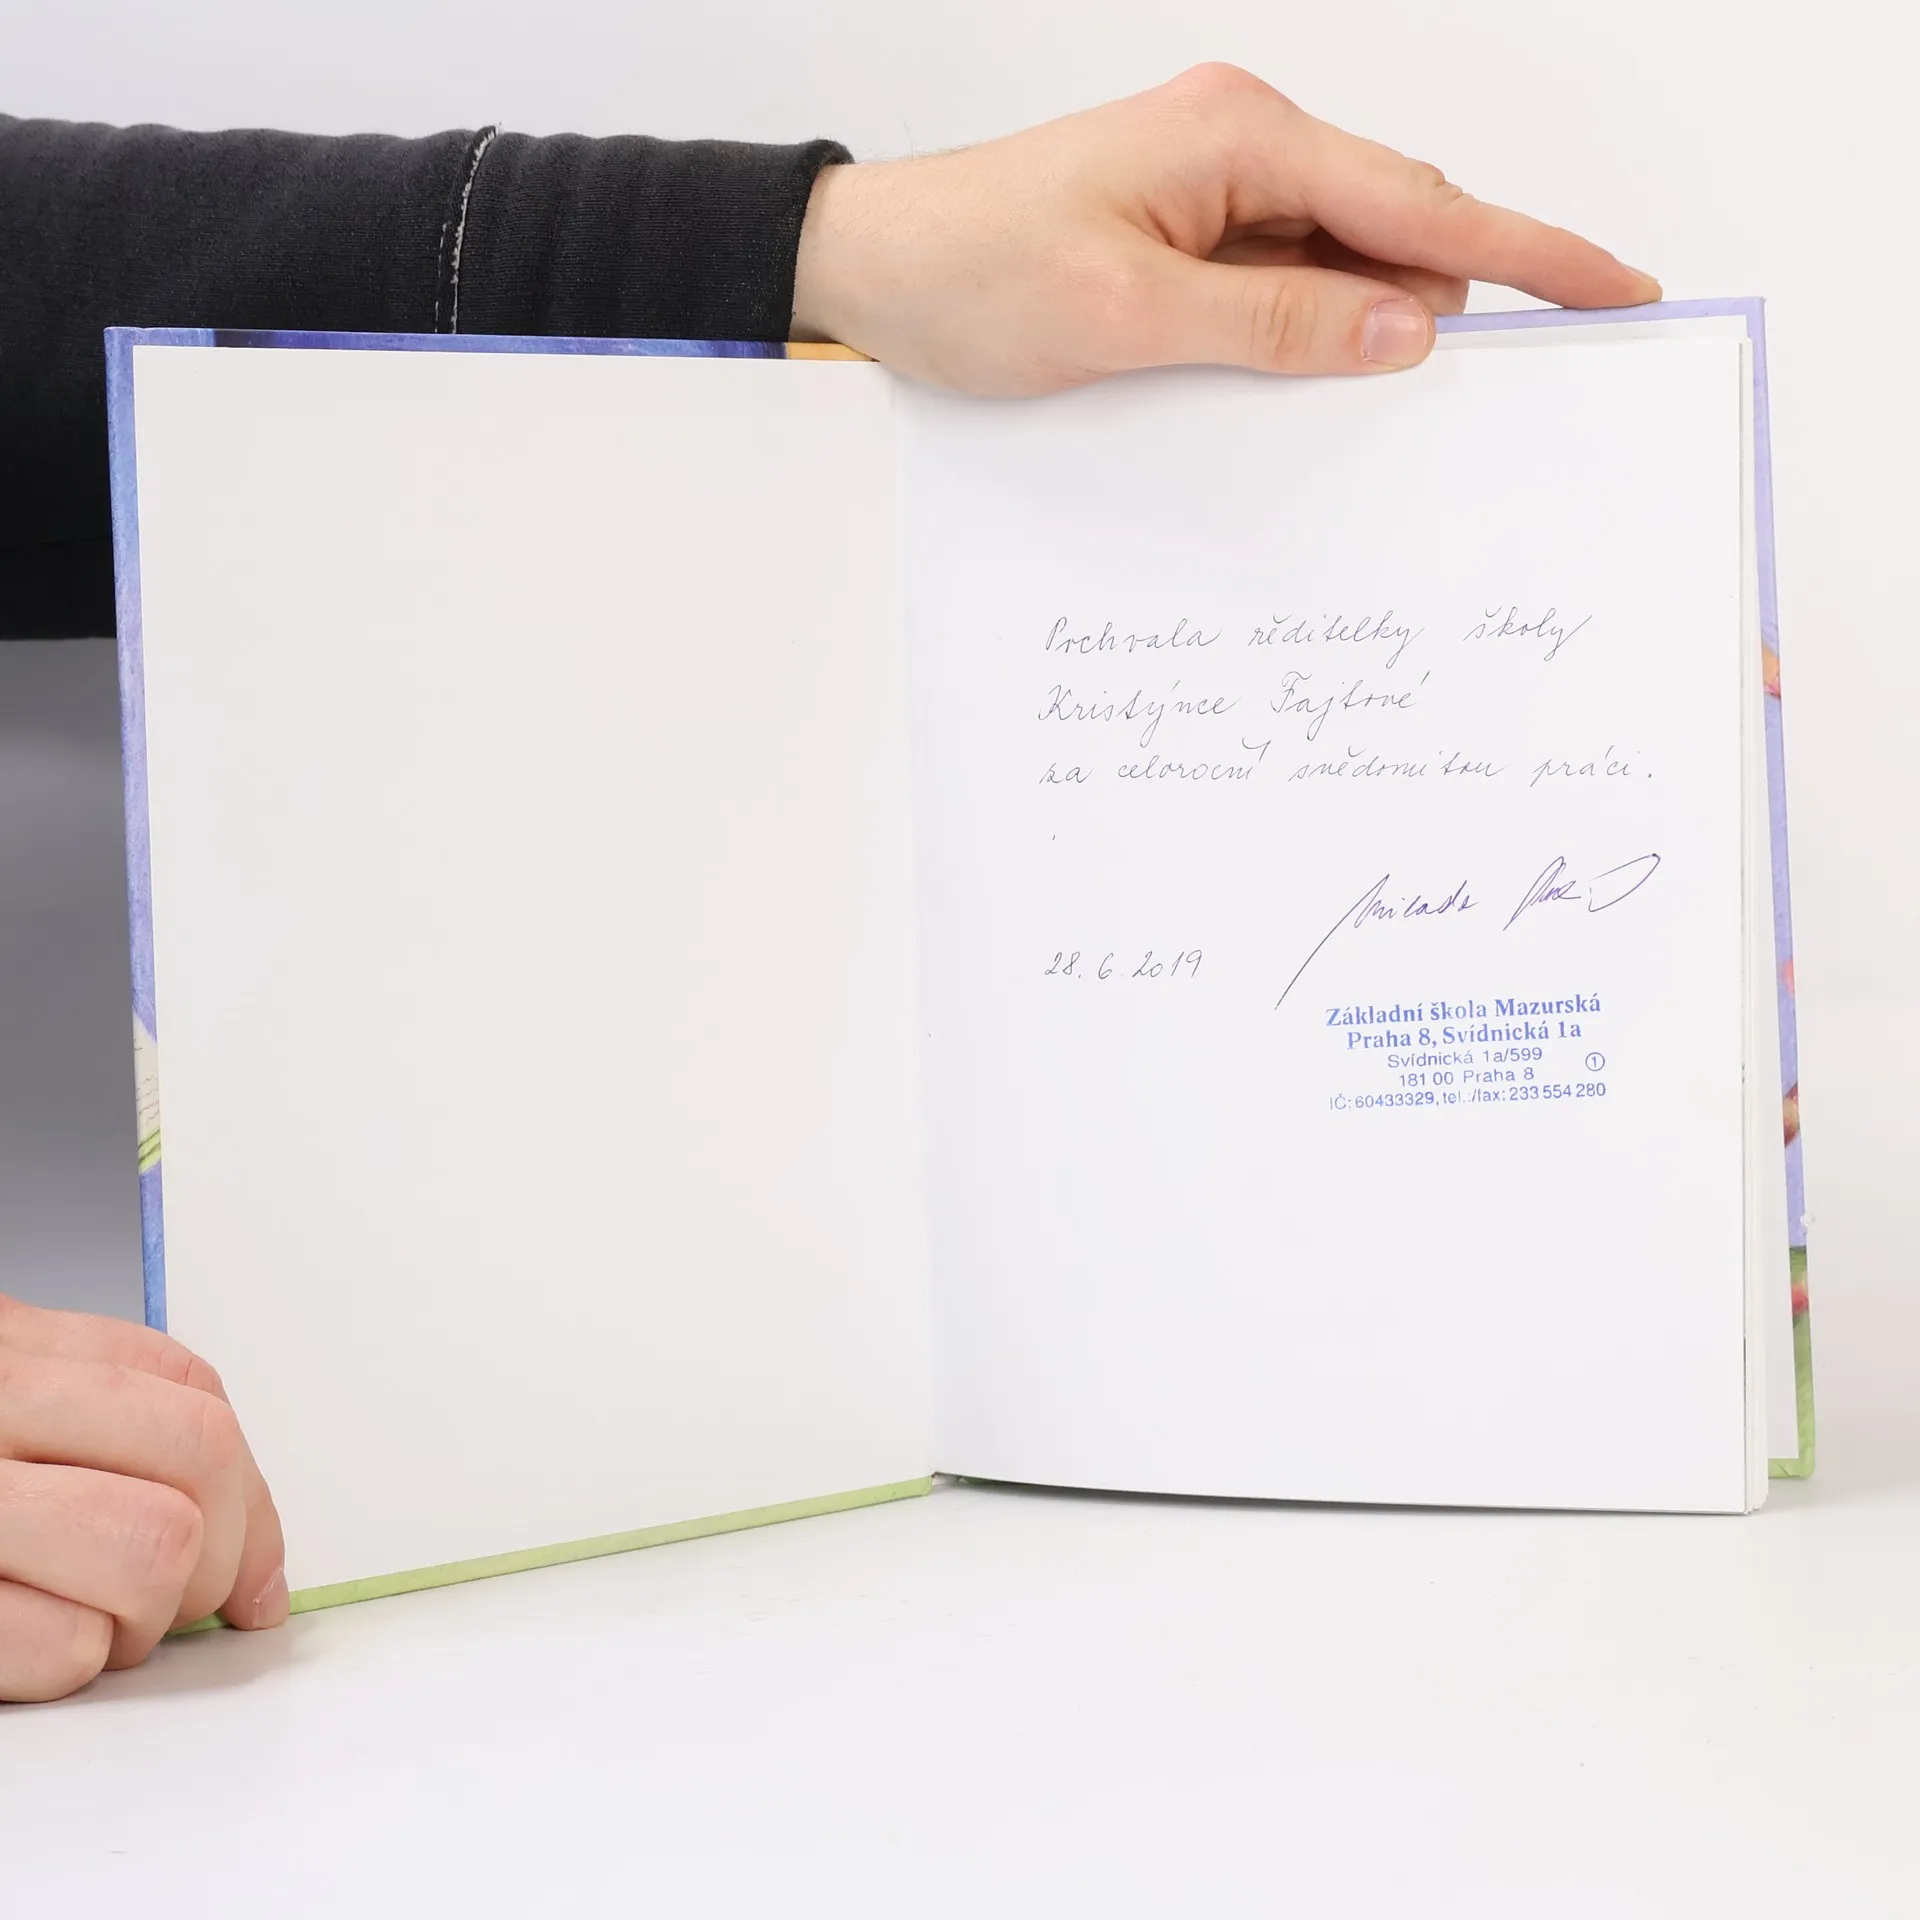 Pochvala ředitelky školy
Kristýnce Fajtové
za celoroční svědomitou práci.
Milada
28. 6. 2019
Základní škola Mazurská
Praha 8, Svídnická 1a
Svídnická 1a/599
181 00 Praha 8 1
IČ: 60433329, tel.:/fax: 233 554 280